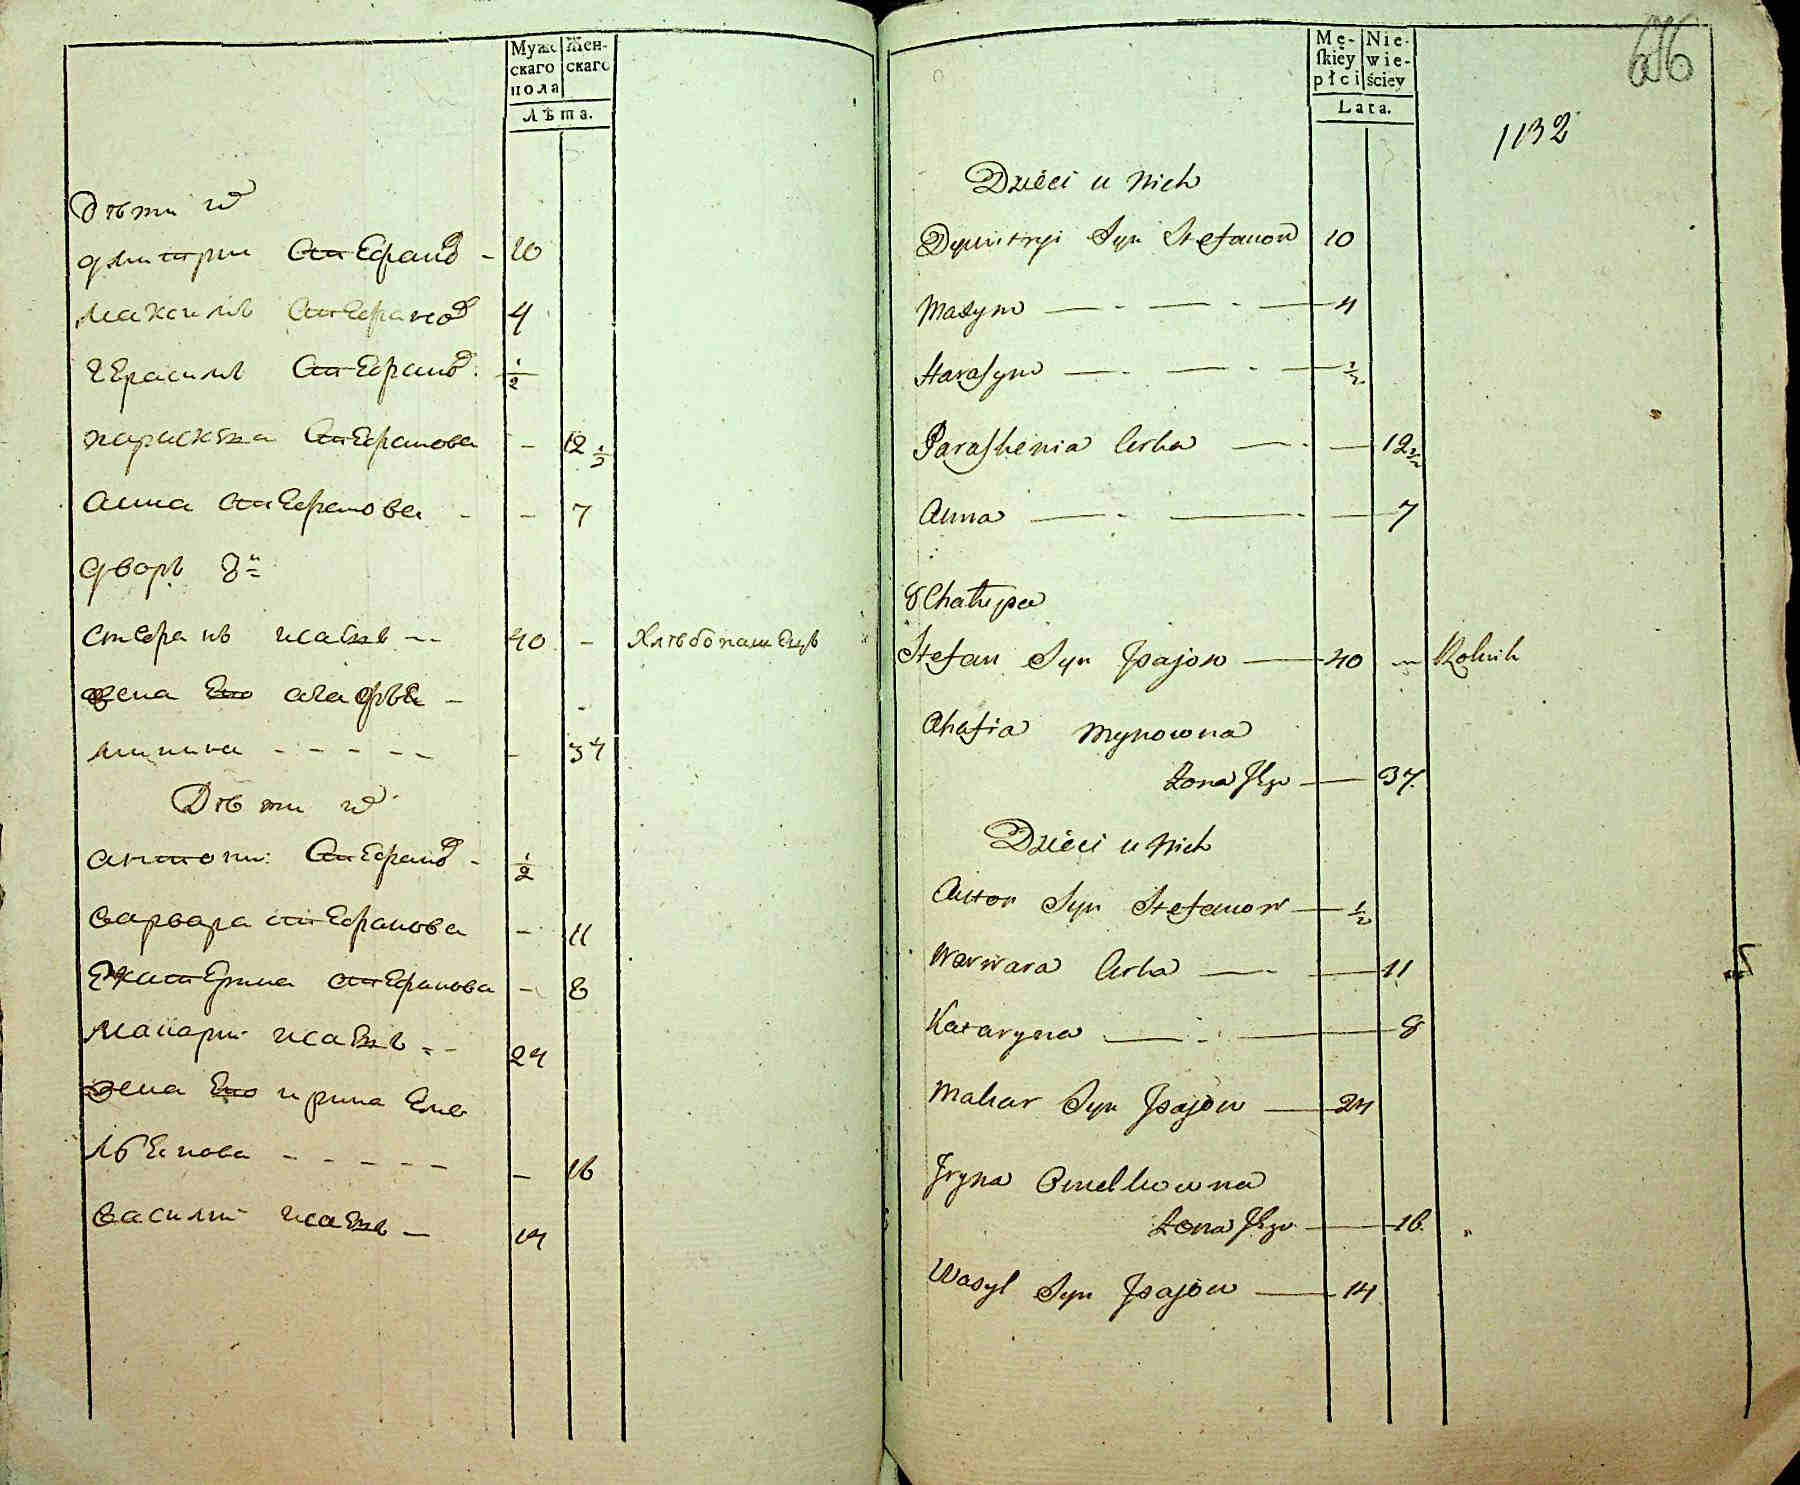 Муже
скаго
пола
Жен-
скаго
Лѣта.
Дѣти их
дмитрии Стефанов - 10
максимъ Стефанов 4
герасимъ Стефанов 1/2
параскева Стефанова - 12 1/2
анна Стефанова - - 7
дворъ 8й
стефанъ исаевъ -- 40 - Хлѣбопашецъ
жена Его агафья -
минина - - - - - - 37
Дѣти их
антони: Стефанов - 1/2
варвара стефанова - 11
Екатерина стефанова - 8
Макари исаевъ -- 24
жена Его ирина Еме
льянова - - - - - - 16
василии исаевъ - 14
Mę-
skiey
płci
Nie-
wie-
ściey
Lata.
696
1132
Dzieci u Nich
Dymitryi Syn Stefanow 10
Maxym — - — - — 4
Harasym — - — - — 1/2
Paraskewia Corka — - — 12 1/2
Anna — - — - — 7
8 Chałupa
Stefan Syn Jsajow — 40 — Rolnik
Ahafia Mynowna
Żona Jego — 37.
Dzieci u Nich
Anton Syn Stefanow — 1/2
Warwara Corka — - — 11
Kataryna — - — 8
Makar Syn Jsajow — 24
Jryna Omelkowna
Żona Jego — 16.
Wasyl Syn Jsajow — 14